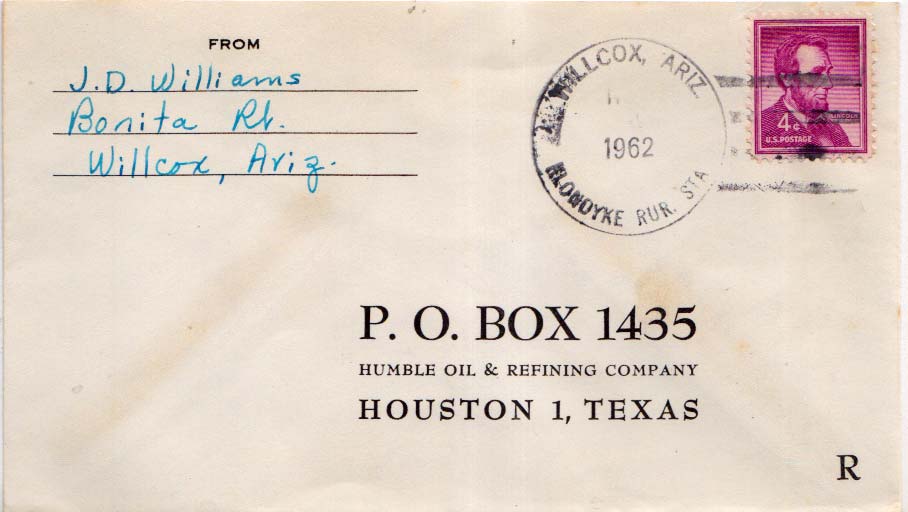 FROM
J.D. Williams
Bonita Rt.
Willcox, Ariz.
WILLCOX, ARIZ.
1962
KLONDYKE RUR. STA
LINCOLN
4¢
U.S. POSTAGE
P. O. BOX 1435
HUMBLE OIL & REFINING COMPANY
HOUSTON 1, TEXAS
R